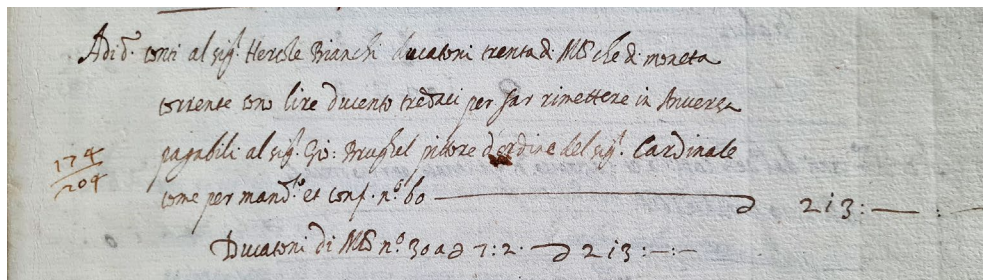 Adi d.º conti al sig.r Hercole Bianchi ducatoni trenta di Mlº che di moneta
corrente sono lire ducento tredeci per far rimettere in Anversa
pagabili al sig.r Gio: Brughel pitore d'ordine del sig.r Cardinale
174
204
come per mand.to et conf. n.º 60 213:—:—
Ducatoni di Mlº n.º 30 a d 7:2.— 213:—:—